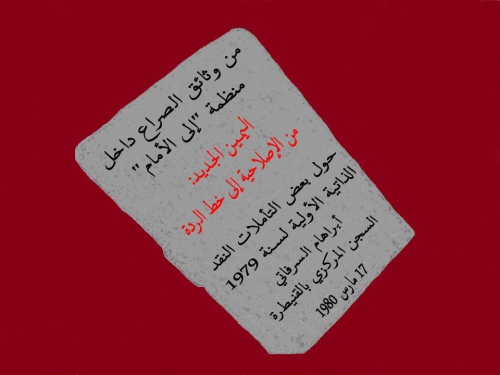 من وثائق الصراع داخل
منظمة "إلى الأمام"
اليمين الجديد:
من الإصلاحية إلى خط الردة
حول بعض التأملات النقد
الذاتية الأولية لسنة 1979
أبراهام السرفاتي
السجن المركزي بالقنيطرة
17 مارس 1980